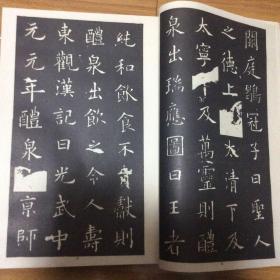 闕庭鶡冠子曰聖人
之德上 太清下及
太寧 及萬靈則醴
泉出瑞應圖曰王者
純和飲食不 獻則
醴泉出飲之令人壽
東觀漢記曰光武中
元元年醴泉 京師